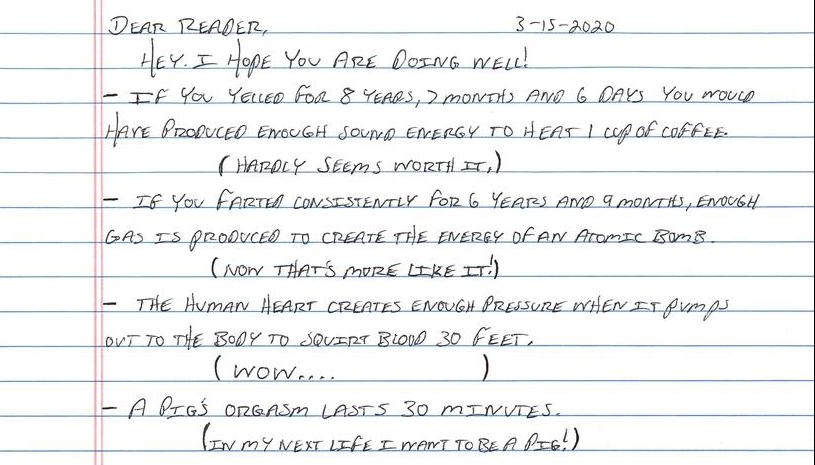 DEAR READER, 3-15-2020
HEY. I HOPE YOU ARE DOING WELL!
- IF YOU YELLED FOR 8 YEARS, 7 MONTHS AND 6 DAYS YOU WOULD
HAVE PRODUCED ENOUGH SOUND ENERGY TO HEAT 1 CUP OF COFFEE.
(HARDLY SEEMS WORTH IT.)
- IF YOU FARTED CONSISTENTLY FOR 6 YEARS AND 9 MONTHS, ENOUGH
GAS IS PRODUCED TO CREATE THE ENERGY OF AN ATOMIC BOMB.
(NOW THAT'S MORE LIKE IT!)
- THE HUMAN HEART CREATES ENOUGH PRESSURE WHEN IT PUMPS
OUT TO THE BODY TO SQUIRT BLOOD 30 FEET.
(WOW.... )
- A PIG'S ORGASM LASTS 30 MINUTES.
(IN MY NEXT LIFE I WANT TO BE A PIG!)